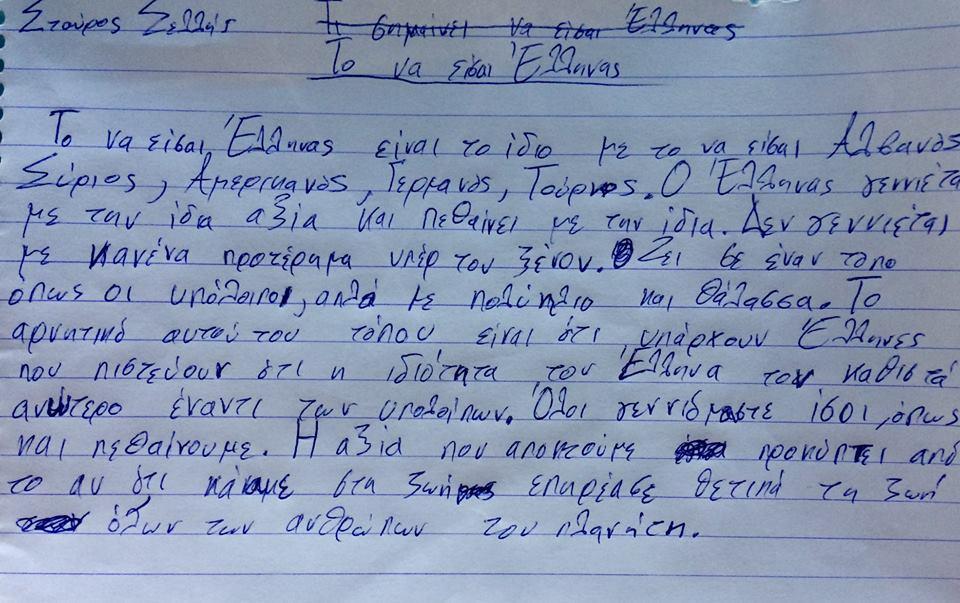 Σταύρος Σελλής Τι σημαίνει να είσαι Έλληνας
Το να είσαι Έλληνας
Το να είσαι Έλληνας είναι το ίδιο με το να είσαι Αλβανός
Σύριος, Αμερικανός, Γερμανός, Τούρκος. Ο Έλληνας γεννιέτα
με την ίδια αξία και πεθαίνει με την ίδια. Δεν γεννιέται
με κανένα προτέραμα υπέρ του ξένου. Ζει σε έναν τόπο
όπως οι υπόλοιποι, απλά με πολύ ήλιο και θάλασσα. Το
αρνητικό αυτού του τόπου είναι ότι υπάρχουν Έλληνες
που πιστεύουν ότι η ιδιότητα του Έλληνα τον καθιστά
ανώτερο έναντι των υπολοίπων. Όλοι γεννιόμαστε ίσοι, όπως
και πεθαίνουμε. Η αξία που αποκτούμε προκύπτει από
το αν ότι κάναμε στη ζωή επηρέασε θετικά τη ζωή
όλων των ανθρώπων του πλανήτη.